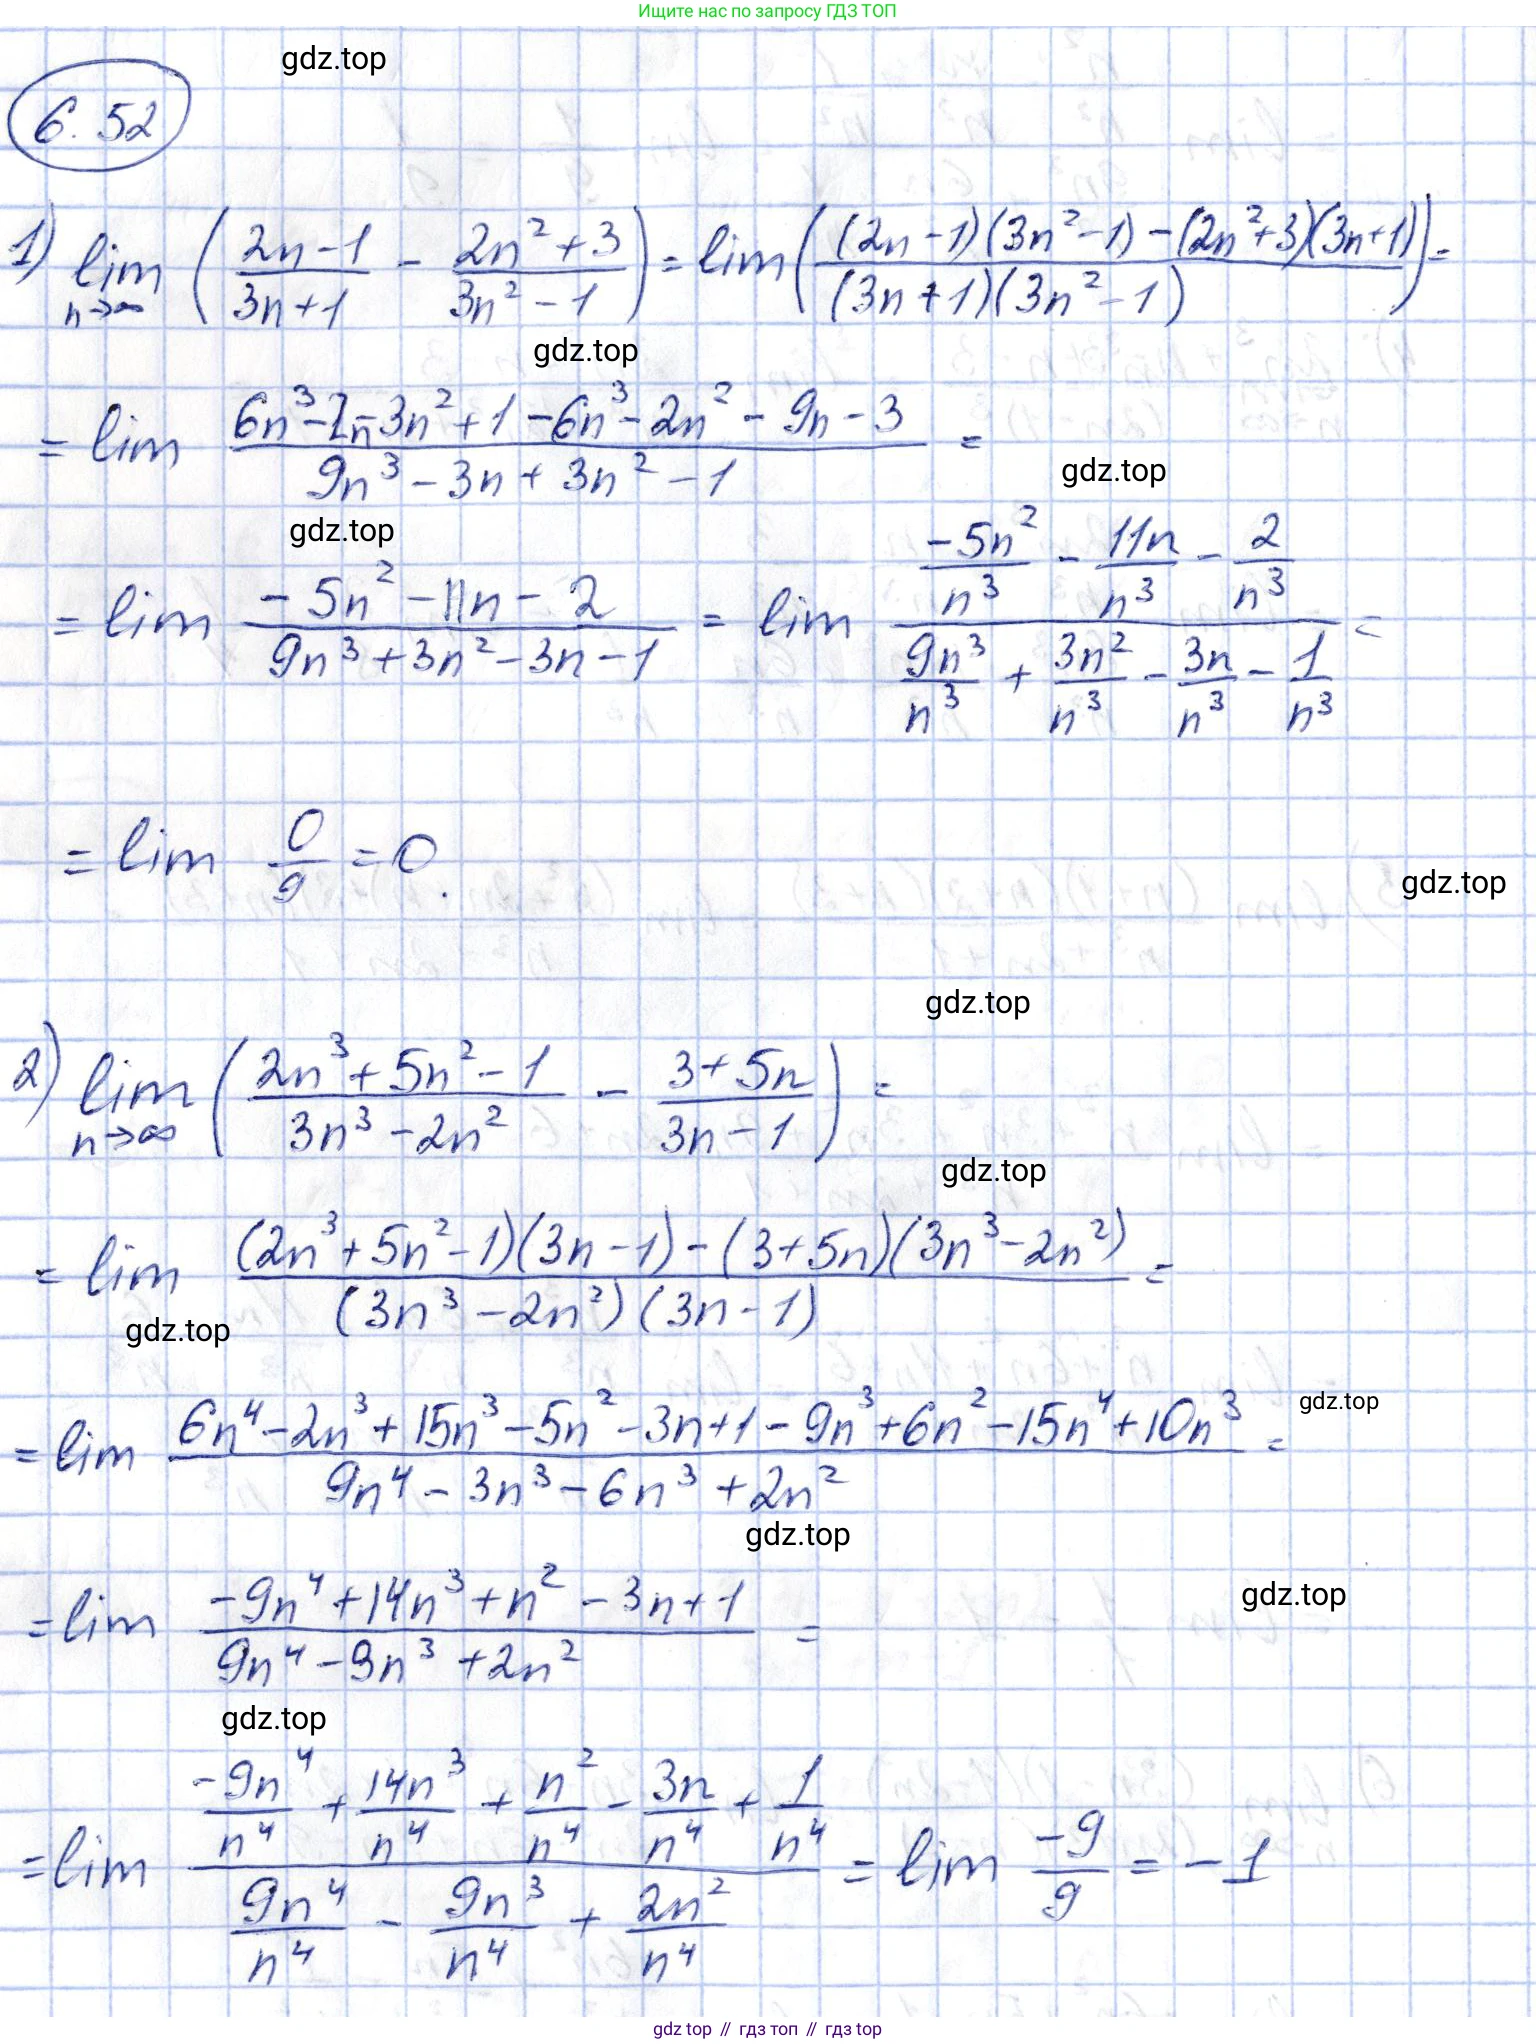 Ищите нас по запросу ГДЗ ТОП
gdz.top
6.52
1) lim n→∞ ( (2n-1)/(3n+1) - (2n²+3)/(3n²-1) ) = lim ( ((2n-1)(3n²-1)-(2n²+3)(3n+1))/((3n+1)(3n²-1)) ) =
gdz.top
= lim (6n³-2n-3n²+1-6n³-2n²-9n-3)/(9n³-3n+3n²-1) =
gdz.top
gdz.top
= lim (-5n²-11n-2)/(9n³+3n²-3n-1) = lim (-5n²/n³ - 11n/n³ - 2/n³)/(9n³/n³ + 3n²/n³ - 3n/n³ - 1/n³) =
= lim 0/9 = 0.
gdz.top
gdz.top
2) lim n→∞ ( (2n³+5n²-1)/(3n³-2n²) - (3+5n)/(3n-1) ) =
gdz.top
= lim ((2n³+5n²-1)(3n-1)-(3+5n)(3n³-2n²))/((3n³-2n²)(3n-1)) =
gdz.top
= lim (6n⁴-2n³+15n³-5n²-3n+1-9n³+6n²-15n⁴+10n³)/(9n⁴-3n³-6n³+2n²) =
gdz.top
gdz.top
= lim (-9n⁴+14n³+n²-3n+1)/(9n⁴-9n³+2n²) =
gdz.top
gdz.top
= lim (-9n⁴/n⁴ + 14n³/n⁴ + n²/n⁴ - 3n/n⁴ + 1/n⁴)/(9n⁴/n⁴ - 9n³/n⁴ + 2n²/n⁴) = lim -9/9 = -1
gdz.top // гдз топ // гдз.top